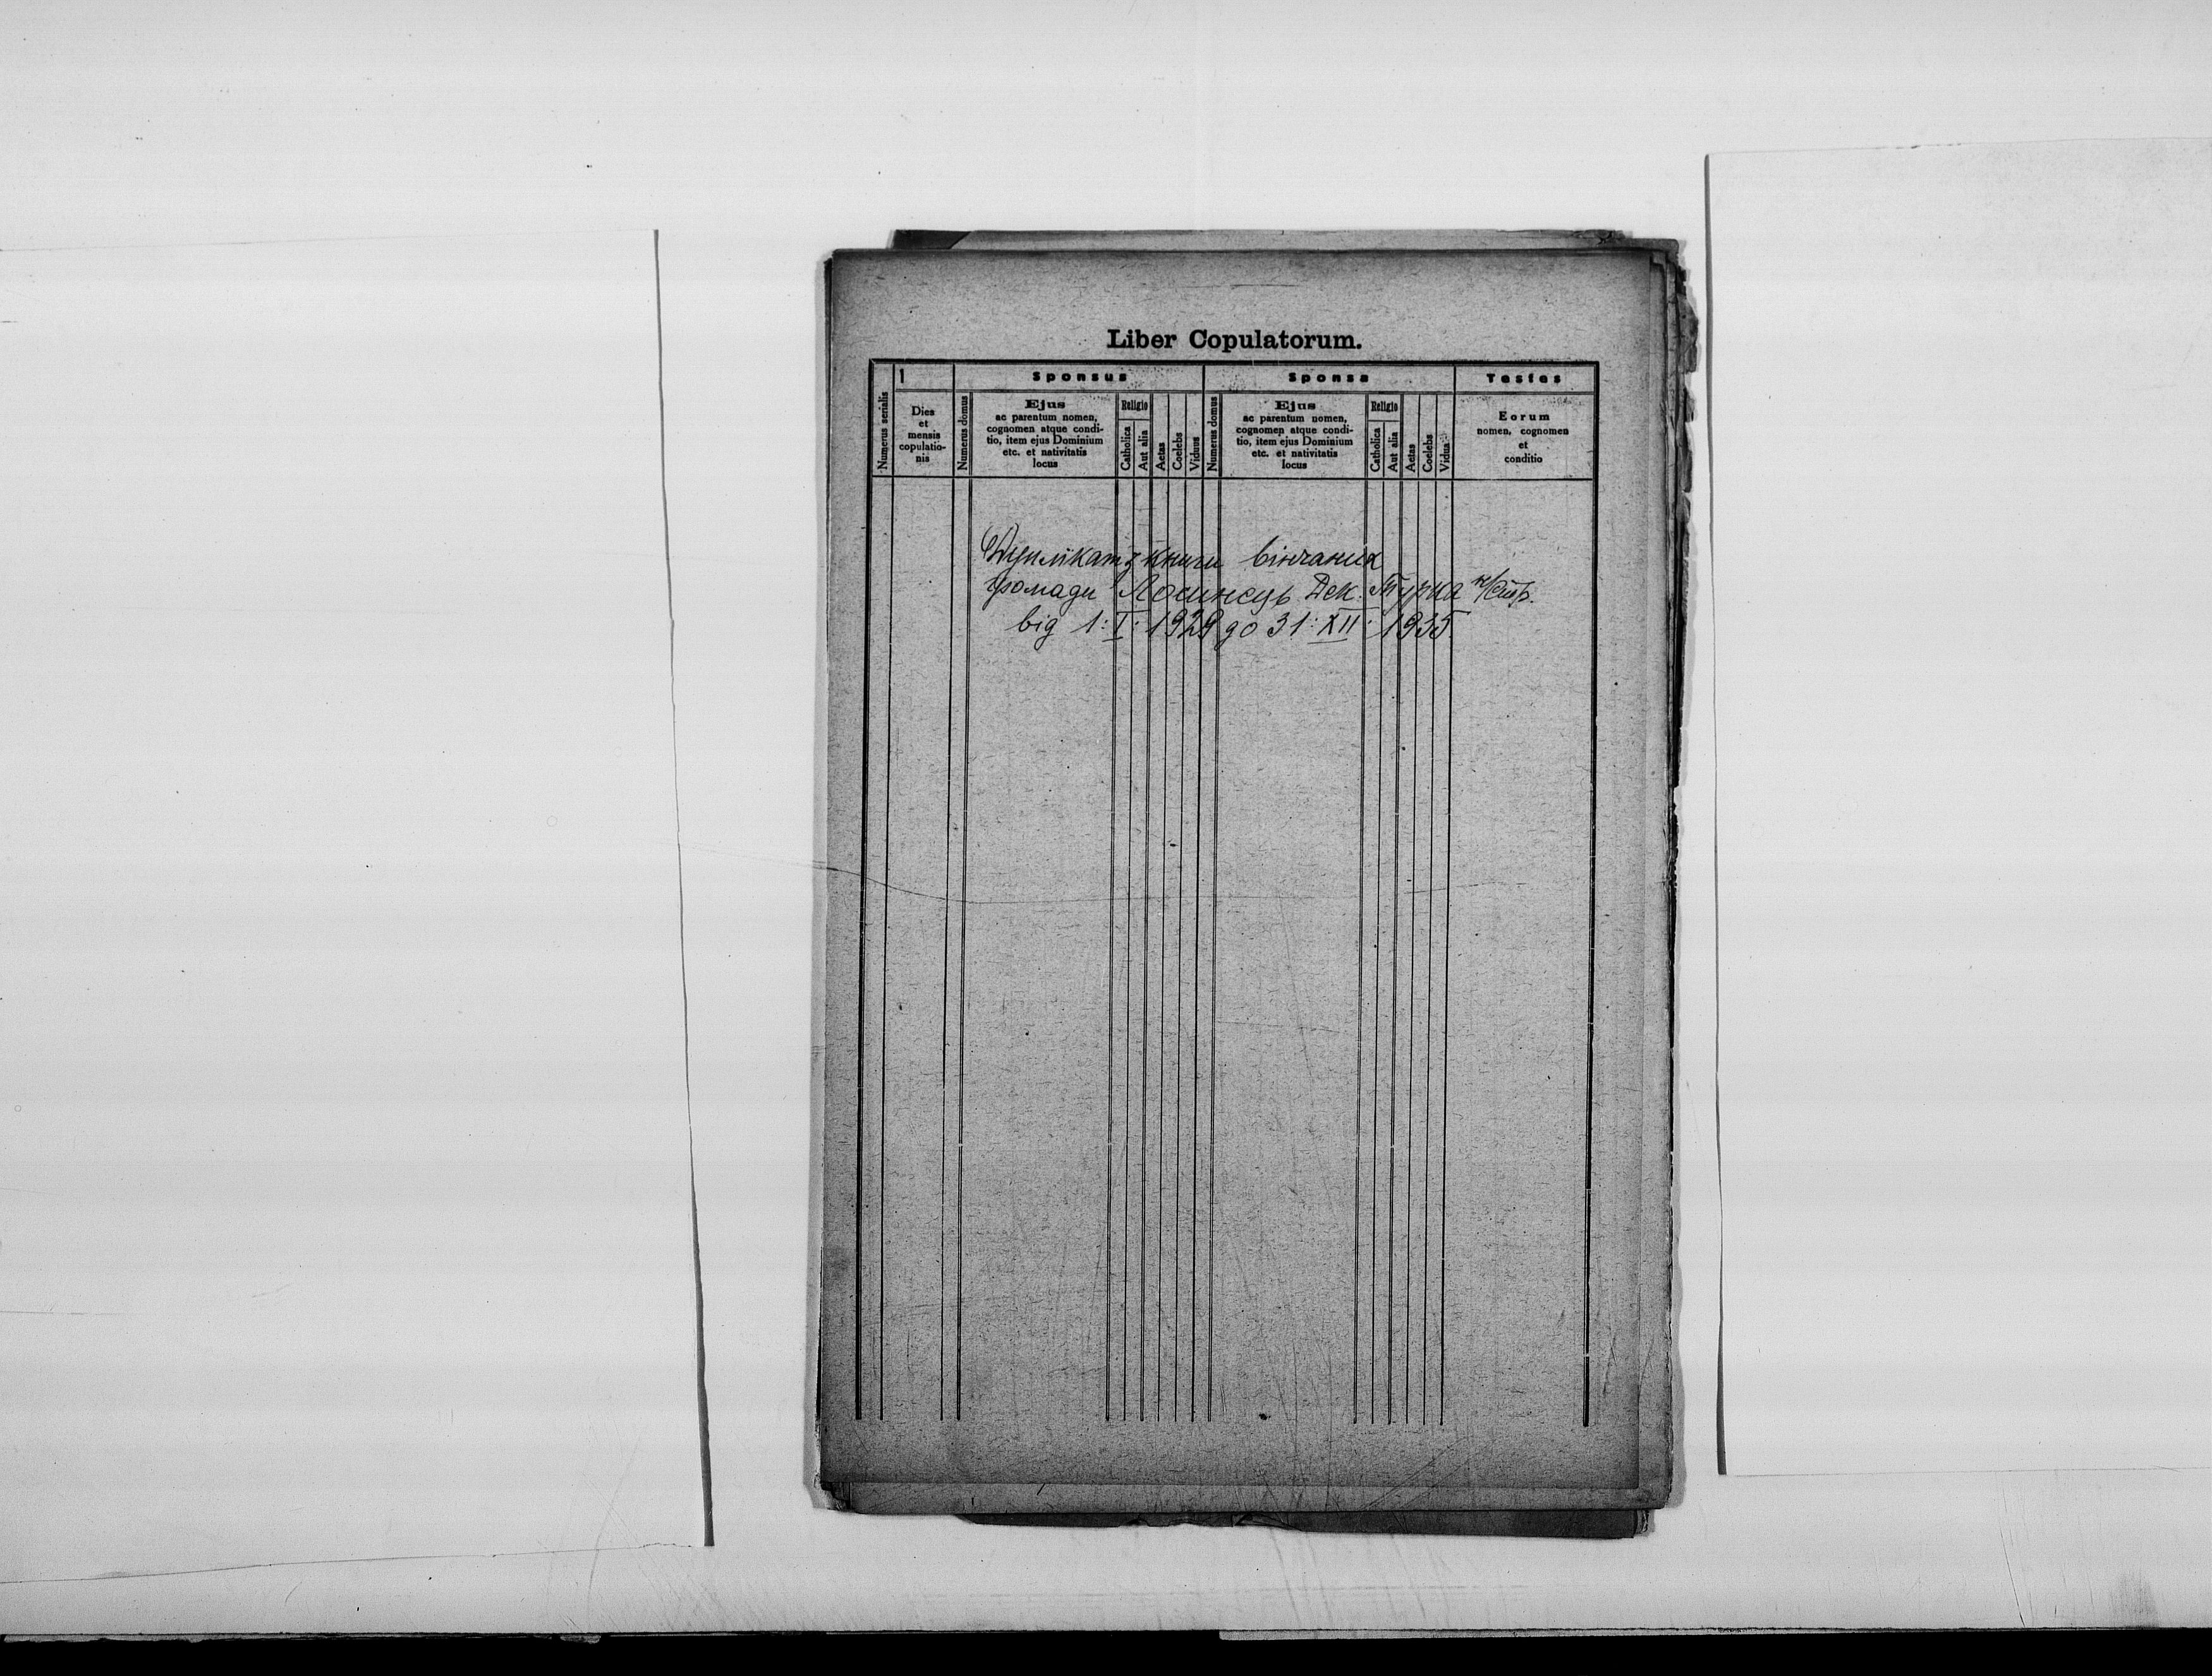 Liber Copulatorum.
Numerus serialis
1
Dies
et
mensis
copulatio-
nis
Sponsus
Numerus domus
Ejus
ac parentum nomen,
cognomen atque condi-
tio, item ejus Dominium
etc. et nativitatis
locus
Religio
Catholica
Aut alia
Aetas
Coelebs
Viduus
Sponsa
Numerus domus
Ejus
ac parentum nomen,
cognomen atque condi-
tio, item ejus Dominium
etc. et nativitatis
locus
Religio
Catholica
Aut alia
Aetas
Coelebs
Vidua
Testes
Eorum
nomen, cognomen
et
conditio
Дуплїкат книги вінчаних
громади Лосинець Дек. Турка н/Стр.
від 1: I: 1929 до 31: XII: 1935